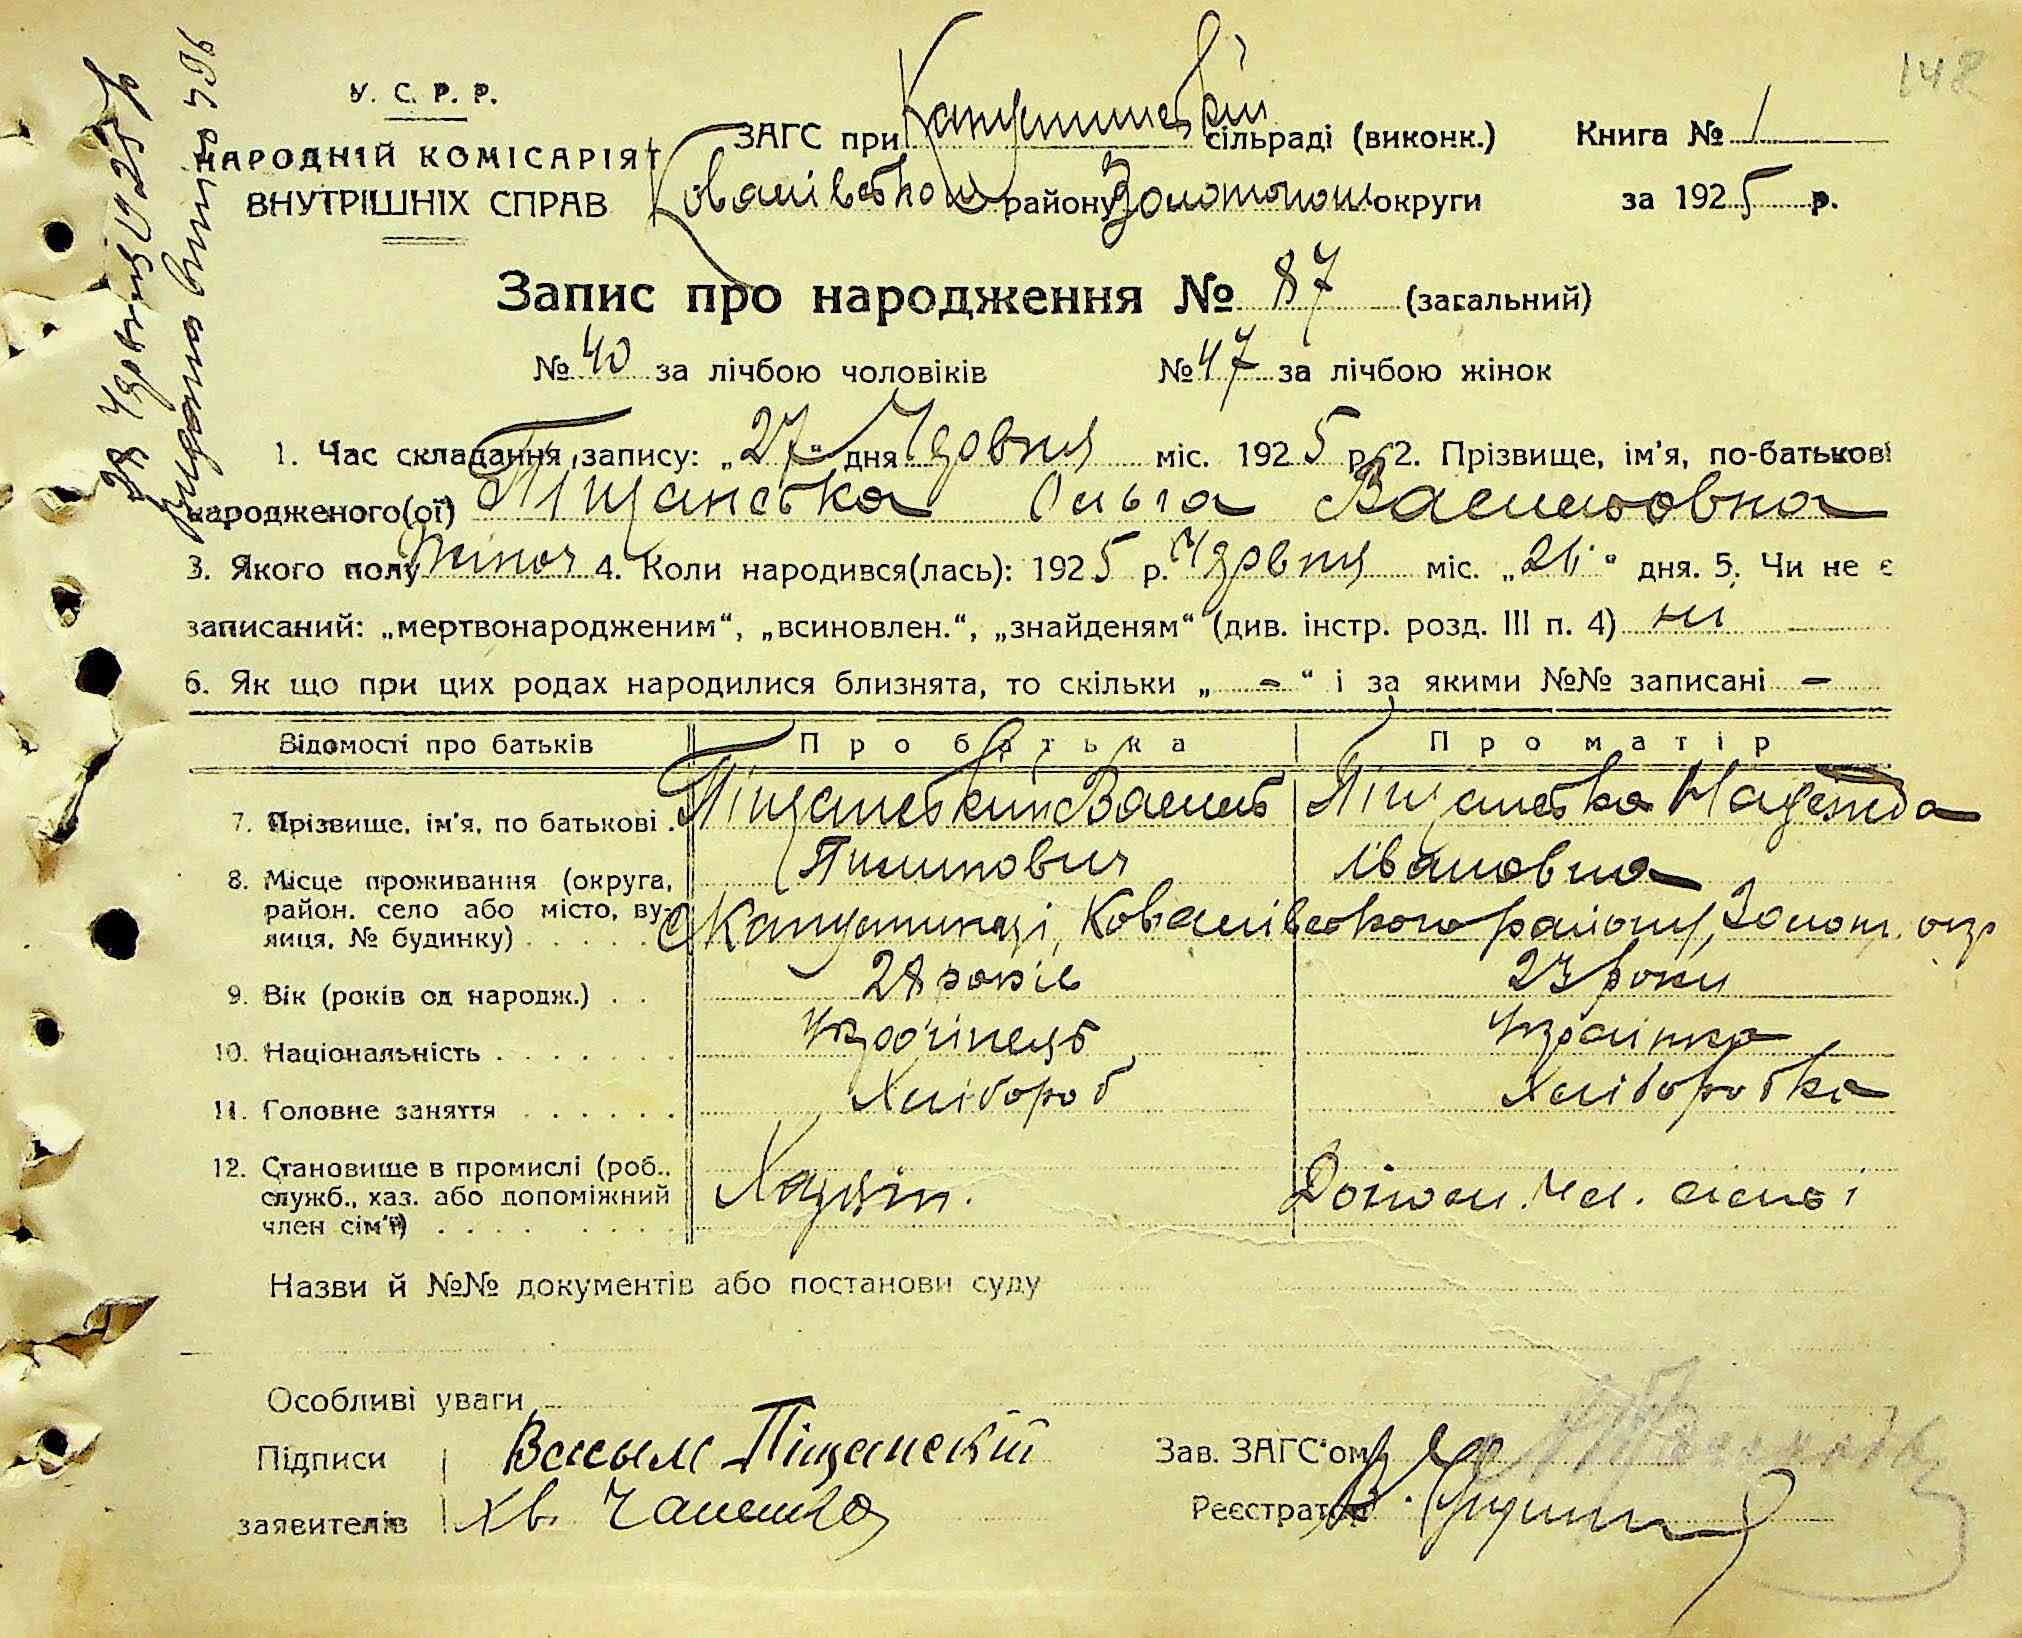 148
У. С. Р. Р.
НАРОДНІЙ КОМІСАРІЯТ
ВНУТРІШНІХ СПРАВ
ЗАГС при Капустинській сільраді (виконк.) Книга № 1
Ковалівського району Золотонош округи за 1925 р.
Запис про народження № 87 (загальний)
№ 40 за лічбою чоловіків № 47 за лічбою жінок
1. Час складання запису: „27“ дня Червня міс. 1925 р. 2. Прізвище, ім'я, по-батькові
народженого(ої) Піщанська Ольга Васильовна
3. Якого полу жіноч 4. Коли народився(лась): 1925 р. Червня міс. „21“ дня. 5. Чи не є
записаний: „мертвонародженим“, „всиновлен.“, „знайденям“ (див. інстр. розд. III п. 4) ні
6. Як що при цих родах народилися близнята, то скільки „ - “ і за якими №№ записані -
Відомості про батьків Про батька Про матір
7. Прізвище, ім'я, по батькові . Піщанський Василь Піщанська Надежда
Пилипович Івановна
8. Місце проживання (округа,
район, село або місто, ву-
лиця, № будинку) . . . . . с Капустинці, Ковалівського району, Золот. окр
9. Вік (років од народж.) . . 28 років 23 роки
10. Національність . . . . . . . Українець Українка
11. Головне заняття . . . . . . Хлібороб Хліборобка
12. Становище в промислі (роб..
служб., хаз. або допоміжний
член сім'ї) . . . . Хазяїн. Допом. чл. сім'ї
Назви й №№ документів або постанови суду
Особливі уваги
Підписи Васыл Піщанскій
заявителів
Зав. ЗАГС'ом
Реєстратор